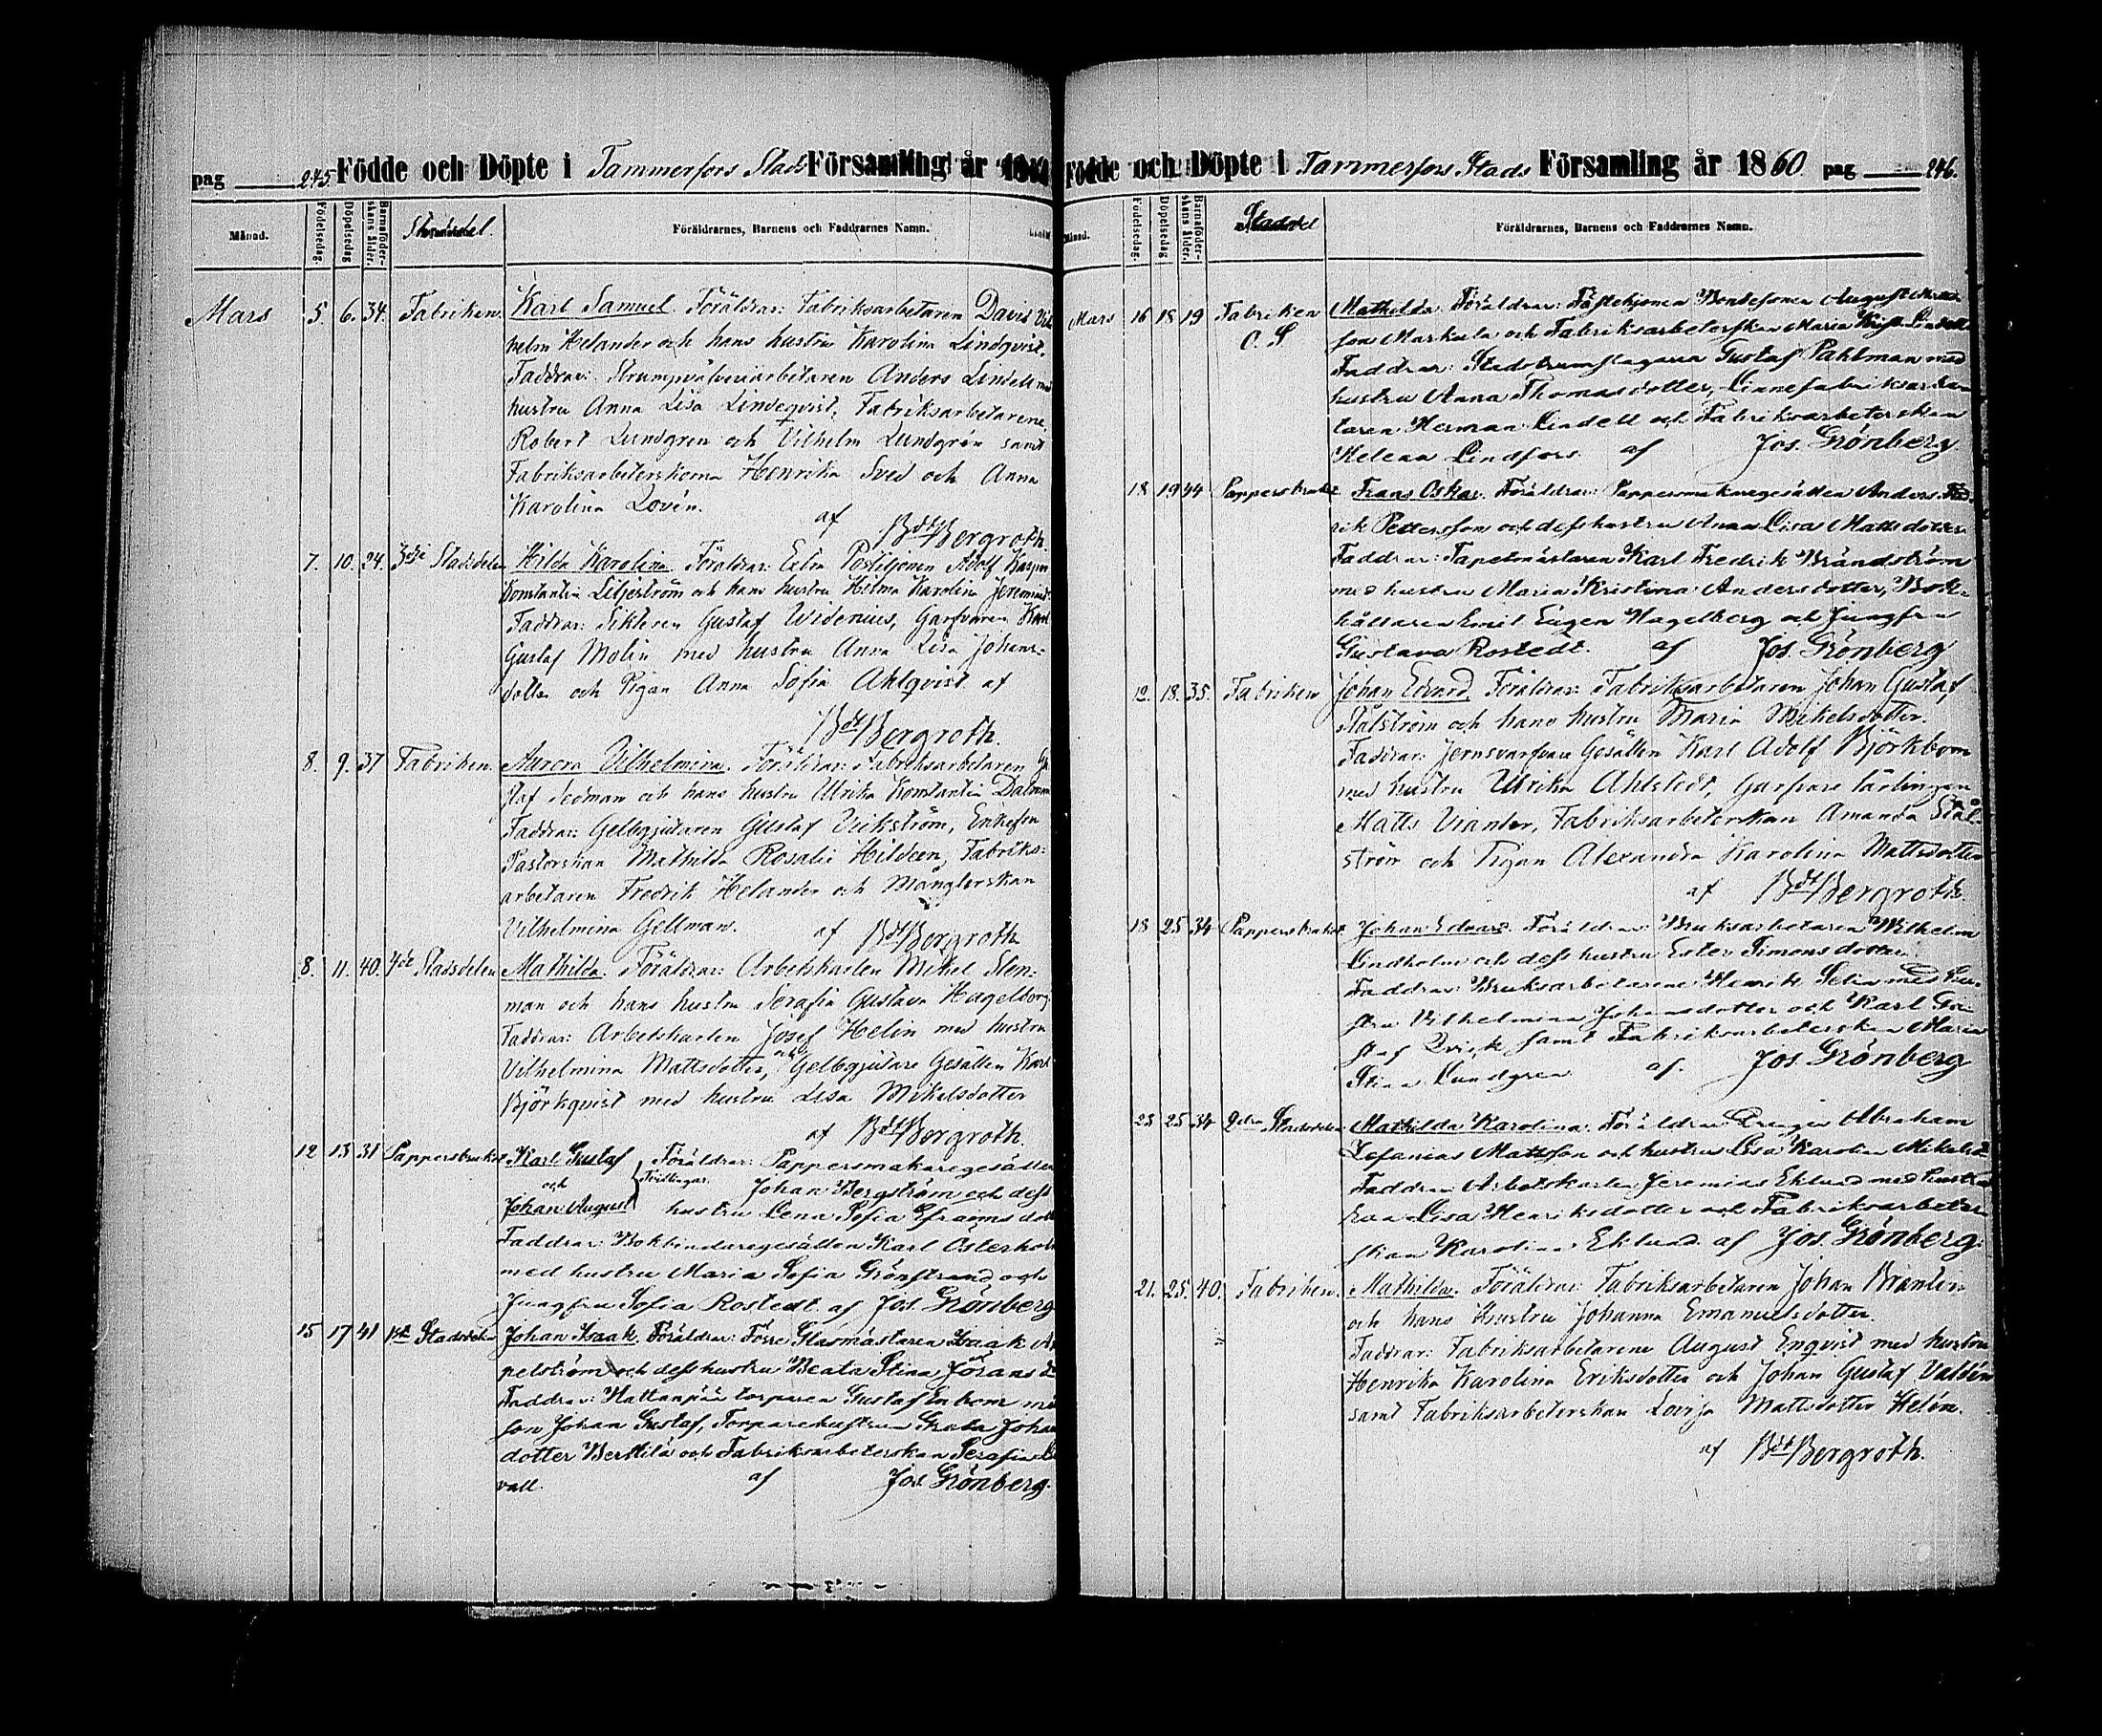 pag 245. Födde och Döpte i Tammerfors Stads Församling år
Månad. Födelsedag. Döpelsedag Barnaföderskans ålder. Stadsdel. Föräldrarnes, Barnens och Faddrarnes Namn.
Mars 5. 6. 34. Fabriken. Karl Samuel. Föräldrar: Fabriksarbetaren David Vil
helm Helander och hans hustru Karolina Lindqvist.
Faddrar: Strumpväfveriarbetaren Anders Lindell med
hustru Anna Lisa Lindeqvist, Fabriksarbetarene
Robert Lundgren och Vilhelm Lundgrén samt
Fabriksarbeterskorna Henrika Sved och Anna
Karolina Lovén.
af Bdt Bergroth.
7. 10. 24. 3dje Stadsdelen Hilda Karolina. Föräldrar: Extra Postiljonen Adolf
Konstantin Liljeström och hans hustru Hilma Karolina
Faddrar: Siktoren Gustaf Widenius, Garfvaren Karl
Gustaf Molin med hustru Anna Lisa Johans-
dotter och Pigan Anna Sofia Ahlqvist af
Bdt Bergroth.
8. 9. 37 Fabriken. Aurora Vilhelmina. Föräldrar: Fabriksarbetaren Gu
staf Sedman och hans hustru Ulrika Konstantia Dalman
Faddrar: Gelbgjutaren Gustaf Vikström, Enkefru
Pastorskan Mathilda Rosalie Hildeen, Fabriks-
arbetaren Fredrik Helander och Månglerskan
Vilhelmina Gellman. af Bdt Bergroth
8. 11. 40. 4de Stadsdelen Mathilda. Föräldrar: Arbetskarlen Mikel Sten-
man och hans hustru Serafia Gustava Hagelborg.
Faddrar: Arbetskarlen Josef Helin med hustru
Vilhelmina Mattsdotter, och Gelbgjutare Gesällen Karl
Björkqvist med hustru Lisa Mikelsdotter
af Bdt Bergroth.
12 13 31 Pappersbruket Karl Gustaf Föräldrar: Pappersmakaregesällen
och Tvillingar. Johan Bergström och dess
Johan August hustru Lena Sofia Efraims dott
Faddrar: Bokbindaregesällen Karl Österholm
med hustru Maria Sofia Grönstrand och
Jungfru Sofia Rostedt. af Jos. Grönberg
15 17 41 1sta Stadsdelen Johan Isaak. Föräldrar: Förre Glasmästaren Isaak Ap
pelström och dess hustru Beata Stina Jörans d
Faddrar: Hattanpää torparen Gustaf Enbom med
son Johan Gustaf, Torparehustrun Greta Johans
dotter Berttilä och Fabriksarbeterskan Serafia
vall. af Jos. Grönberg.
Födde och Döpte i Tammerfors Stads Församling år 1860 pag 246.
Månad. Födelsedag. Döpelsedag Barnaföderskans ålder. Stadsdel Föräldrarnes, Barnens och Faddrarnes Namn.
Mars 16 18 19 Fabriken Mathilda. Föräldrar: Fästehjonen Bondesonen August Matts
O. S son Markula och Fabriksarbeterskan Maria Krist. Lindell
Faddrar: Stadstrumslagaren Gustaf Pahlman med
hustru Anna Thomasdotter, Linnefabriksarbe
taren Herman Lindell och Fabriksarbeterskan
Helena Lindfors. af Jos. Grönberg.
18 19 44 Pappersbruket Frans Oskar. Föräldrar: Pappersmakaregesällen Anders Fred
rik Pettersson och dess hustru Anna Lisa Mattsdotter
Faddrar: Tapetmästaren Karl Fredrik Brändström
med hustru Maria Kristina Andersdotter, Bok-
hållaren Emil Eugen Hagelberg och Jungfru
Gustava Rostedt. af Jos. Grönberg
12. 18. 35. Fabriken Johan Edvard. Föräldrar: Fabriksarbetaren Johan Gustaf
Stålström och hans hustru Maria Mikelsdotter.
Faddrar: Jernsvarfvare Gesällen Karl Adolf Björkbom
med hustru Ulrika Ahlstedt, Garfvare lärlingen
Matts Viander, Fabriksarbeterskan Amanda Stål-
ström och Pigan Alexandra Karolina Mattsdotter
af Bdt Bergroth.
18 25 34 Pappersbruket Johan Edvard. Föräldrar: Bruksarbetaren Wilhelm
Lindholm och dess hustru Ester Simonsdotter.
Faddrar: Bruksarbetarene Henrik Selin med hu-
stru Vilhelmina Johansdotter och Karl Gu-
staf Qvick samt Fabriksarbeterskan Maria
Stina Lundgren af. Jos. Grönberg
23 25 34 2dra Stadsdelen Mathilda Karolina. Föräldrar: Drengen Abraham
Zefanias Mattsson och hustru Lisa Karolina Mikelsd
Faddrar: Arbetskarlen Jeremias Eklund med hustru
Eva Lisa Henriksdotter och Fabriksarbeter-
skan Karolina Eklund. af Jos. Grönberg.
21. 25. 40. Fabriken. Mathilda. Föräldrar: Fabriksarbetaren Johan Branter
och hans hustru Johanna Emanuelsdotter.
Faddrar: Fabriksarbetarene August Enqvist med hustru
Henrika Karolina Eriksdotter och Johan Gustaf Valdén
samt Fabriksarbeterskan Lovisa Mattsdotter Helén.
af Bdt Bergroth.